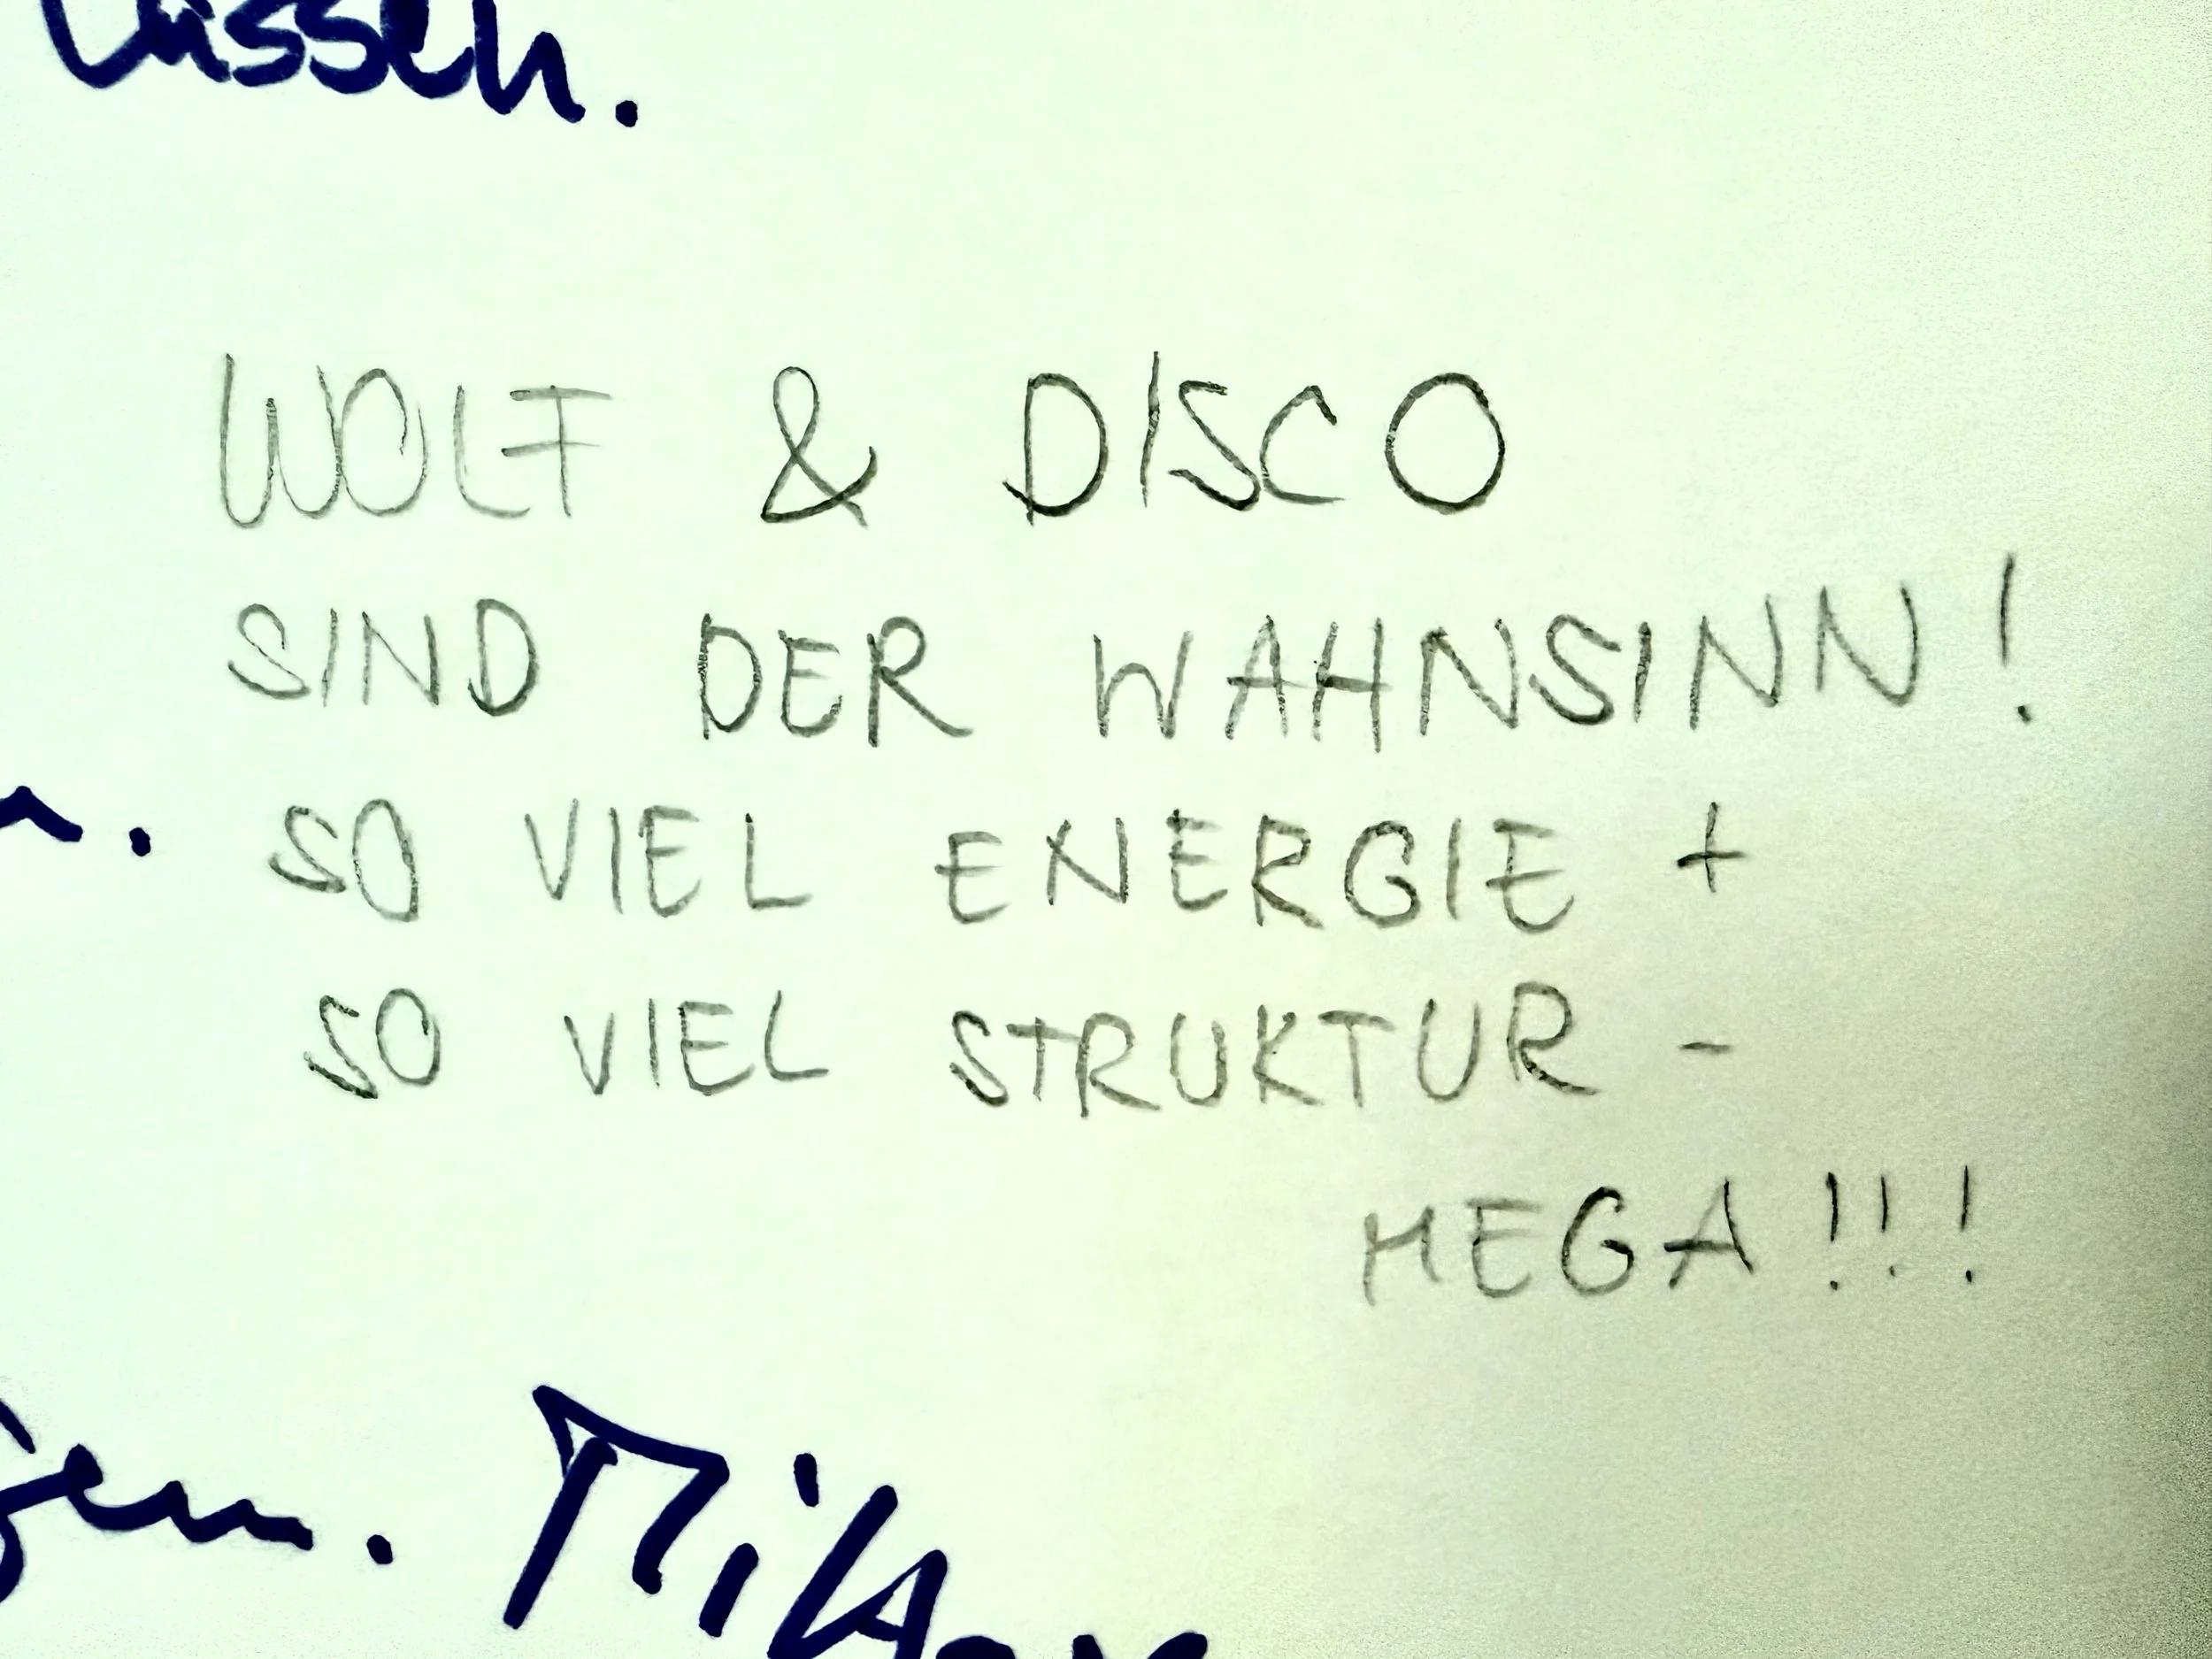 lassen.
WOLF & DISCO
SIND DER WAHNSINN!
SO VIEL ENERGIE +
SO VIEL STRUKTUR -
MEGA!!!